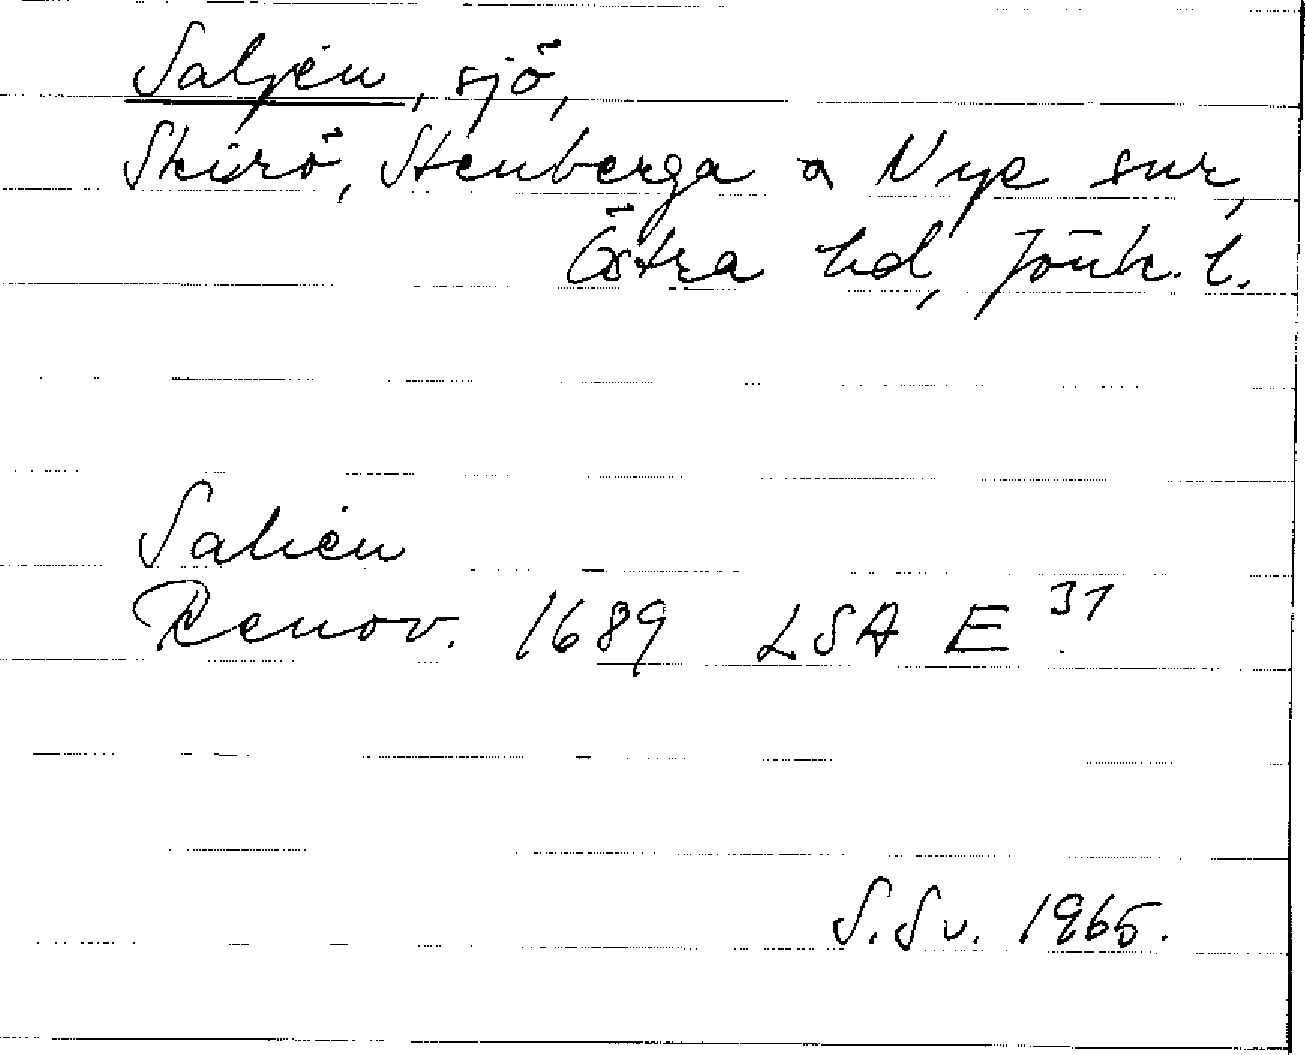 Saljen, sjö,
Skirö, Stenberga o Nye snr,
Östra hd, Jönk. l.
Salien
Renov. 1689 LSA E 31
S. Sv. 1965.